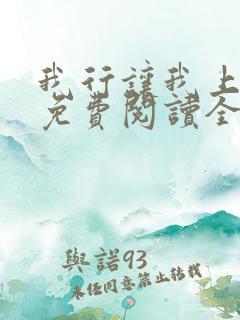 我行讓我上
免費閱讀全
與諾93
未經同意禁止轉載